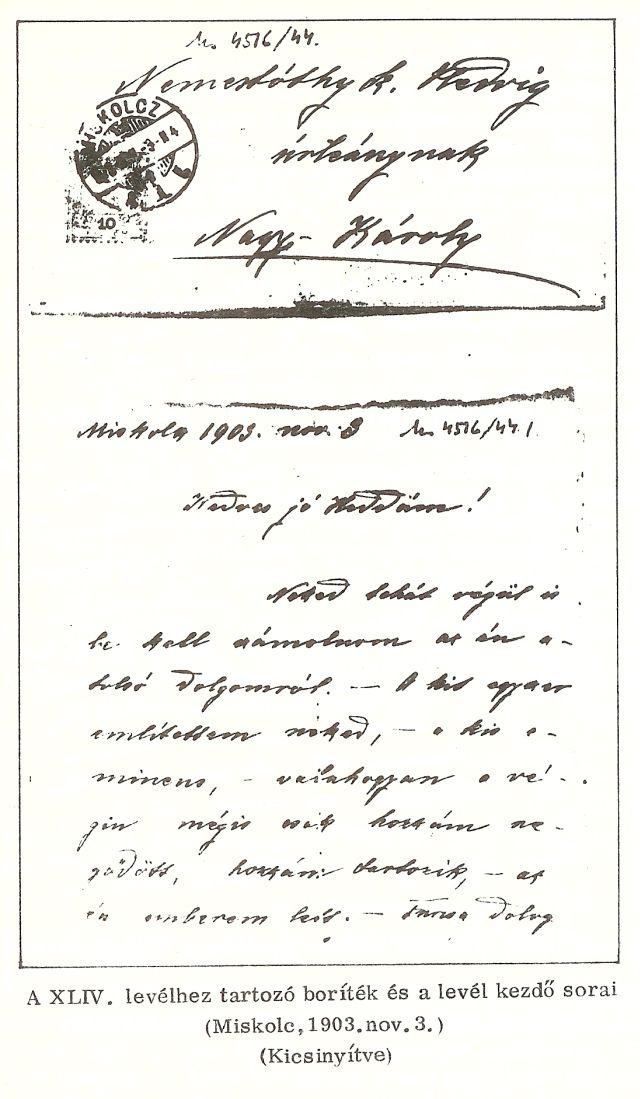 M. 4516/44.
Nemestóthy k. Hedvig
MISKOLCZ
10
úrleánynak
Nagy-Károly
Miskolcz 1903. nov. 3 M. 4516/44.
Kedves jó Heddám!
Neked tehát végül is
be kell számolnom az én u-
tolsó dolgomról. – A kit egyszer
említettem neked, – a kis e-
minens, – valahogyan a vé-
gin mégis csak hozzám sze-
gődött, hozzám tartozik, – az
én emberem lett. – Furcsa dolog
A XLIV. levélhez tartozó boríték és a levél kezdő sorai
(Miskolc, 1903. nov. 3.)
(Kicsinyítve)